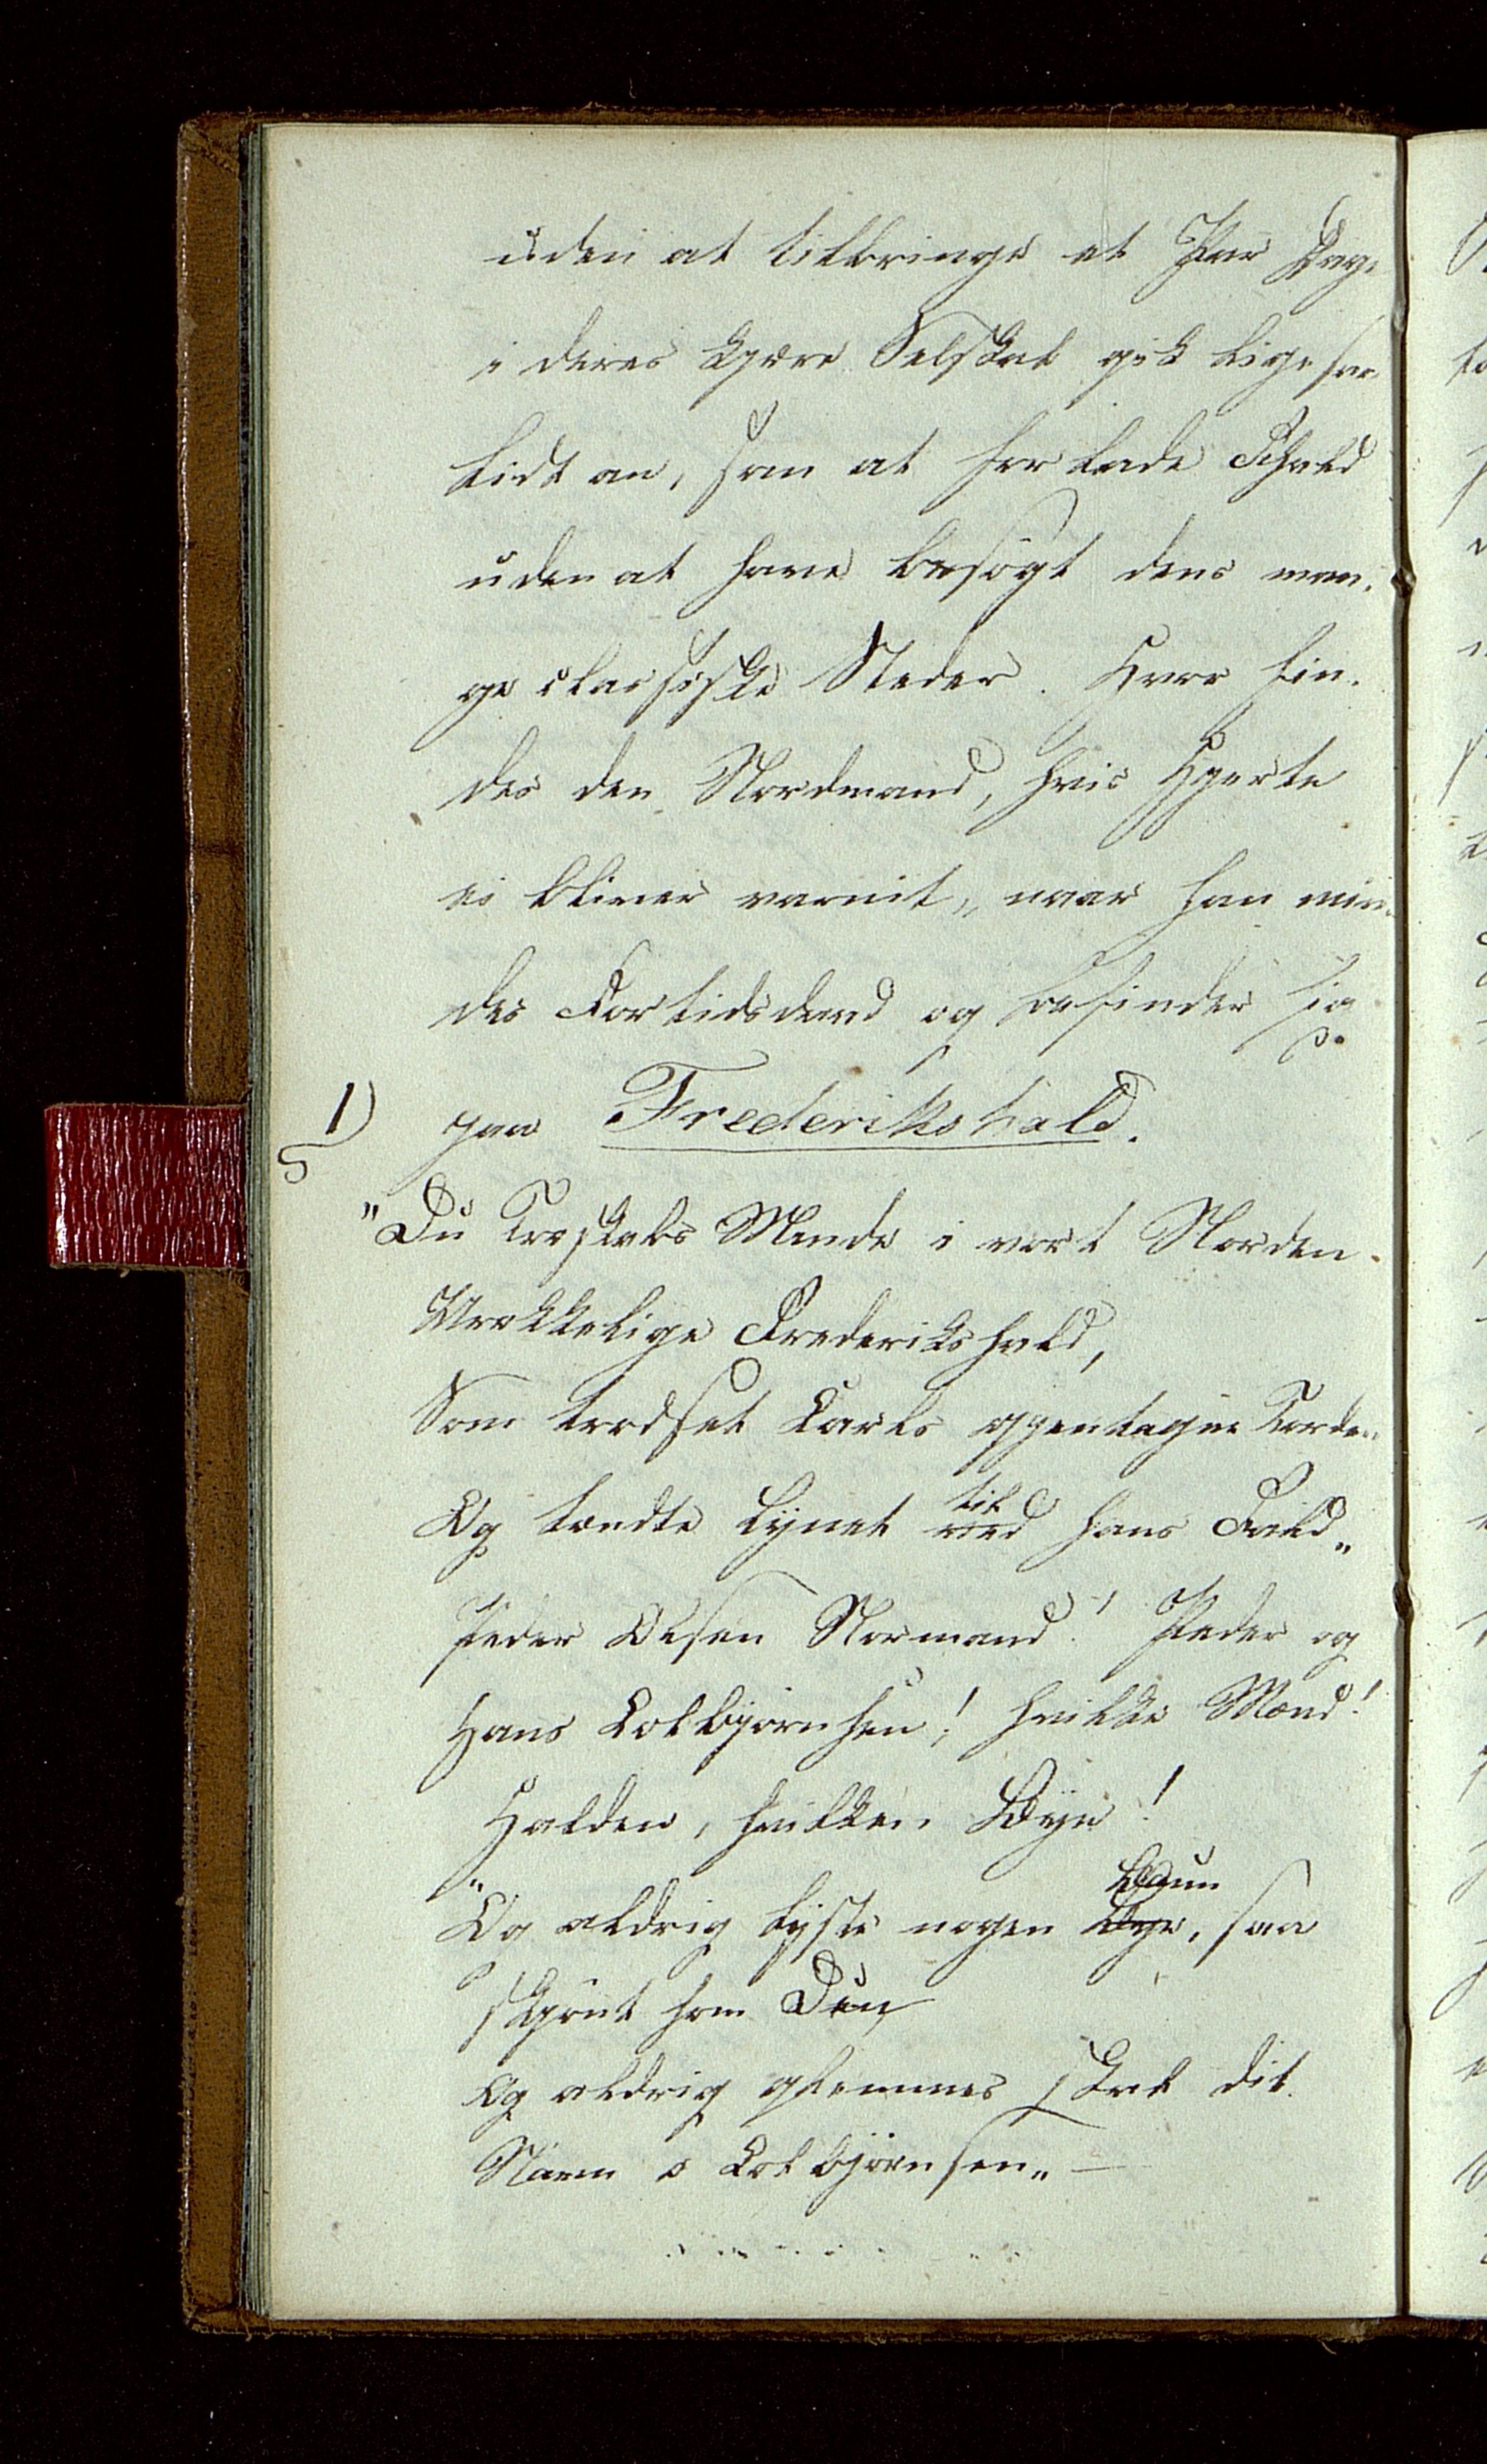 uden at tilbringe et Par Dage
i deres kjære Selskab gik ligesaa
lidt an, som at forlade Fhald
uden at have besøgt dens man-
ge classiske Steder. Hvor fin-
des den Nordmand, hvis Hjerte
ei bliver varmt, naar han min-
des Fortidsdaad og befinder sig
1) paa Frederikshald.
"Du Troskabs Minde i vort Norden.
Urokkelige Frederikshald,
Som trodset Carls gjentagne Torden
Og tændte Lynet til hans Fald„
Peder Olsen Normand! Peder og
Hans Colbjørnsen! hvilke Mænd!
Halden, hvilken Bye!
"Og aldrig lyste nogen Bavn, saa
skjønt som Din
Og aldrig glemmes skal dit
Navn o Colbjørnsen„ —